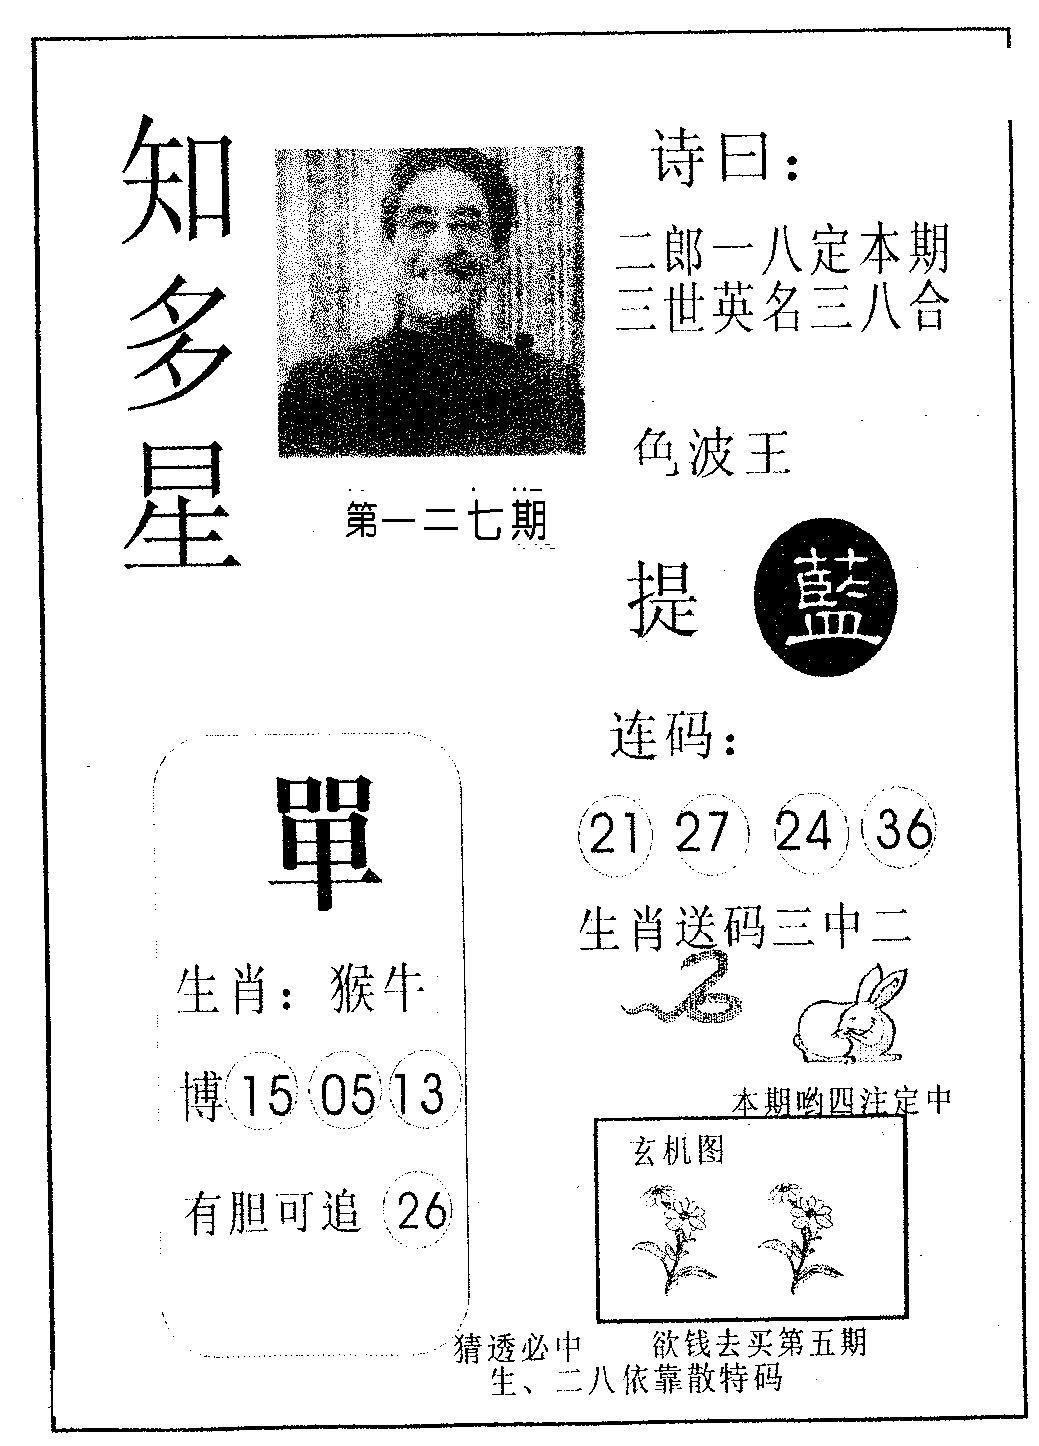 知多星
诗曰：
二郎一八定本期
三世英名三八合
第一二七期
色波王
提 藍
连码：
21 27 24 36
生肖送码三中二
單
生肖：猴牛
博 15 05 13
有胆可追 26
本期哟四注定中
玄机图
猜透必中
欲钱去买第五期
生、二八依靠散特码